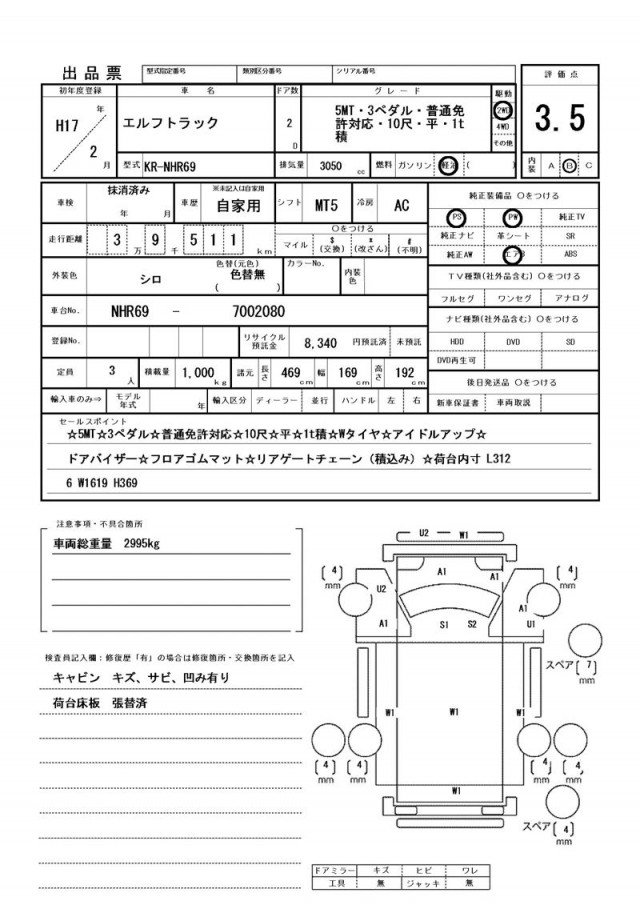 出品票 型式指定番号 類別区分番号 シリアル番号
評価点
3.5
初年度登録 車名 ドア数 グレード 駆動
H17 年
2 月
エルフトラック
2 D
5MT・3ペダル・普通免
許対応・10尺・平・1t
積
2WD
4WD
その他
型式 KR-NHR69 排気量 3050 cc 燃料 ガソリン 軽油 ( )
内装 A B C
車検 抹消済み
年 月
車歴 ※未記入は自家用
自家用
シフト MT5 冷房 AC
純正装備品 〇をつける
PS PW 純正TV
純正ナビ 革シート SR
純正AW エアB ABS
走行距離 3 万 9 千 5 1 1 km
〇をつける
マイル $ (交換) * (改ざん) # (不明)
外装色 シロ 色替(元色)
( 色替無 )
カラーNo. 内装色
TV種類(社外品含む) 〇をつける
フルセグ ワンセグ アナログ
車台No. NHR69 - 7002080
ナビ種類(社外品含む) 〇をつける
HDD DVD SD
DVD再生可
登録No. リサイクル預託金 8,340 円預託済 未預託
定員 3 人 積載量 1,000 kg 諸元 長さ 469 cm 幅 169 cm 高さ 192 cm
後日発送品 〇をつける
新車保証書 車両取説
輸入車のみ⇒ モデル年式 年 輸入区分 ディーラー 並行 ハンドル 左 右
セールスポイント
☆5MT☆3ペダル☆普通免許対応☆10尺☆平☆1t積☆Wタイヤ☆アイドルアップ☆
ドアバイザー☆フロアゴムマット☆リアゲートチェーン（積込み）☆荷台内寸 L312
6 W1619 H369
注意事項・不具合箇所
車両総重量 2995kg
検査員記入欄：修復歴「有」の場合は修復箇所・交換箇所を記入
キャビン キズ、サビ、凹み有り
荷台床板 張替済
U2 W1
A1 A1
(4) mm
(4) mm
U2 A1
A1 S1 S2 U1
スペア (7) mm
W1 W1 W1
(4) mm
(4) mm
(4) mm
(4) mm
W1
スペア (4) mm
ドアミラー キズ ヒビ ワレ
工具 無 ジャッキ 無